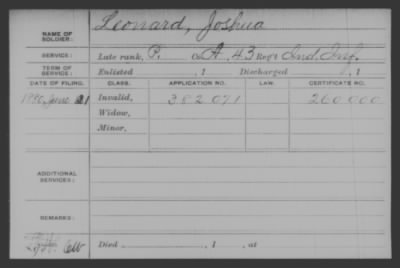 NAME OF SOLDIER: Leonard, Joshua
SERVICE: Late rank, P. Co. A, 43 Reg't Ind. Inf.
TERM OF SERVICE: Enlisted , 1 Discharged , 1
DATE OF FILING. CLASS. APPLICATION NO. LAW. CERTIFICATE NO.
1880, June 21 Invalid, 382 071 260 000
Widow,
Minor,
ADDITIONAL SERVICES:
REMARKS:
Died , 1 , at